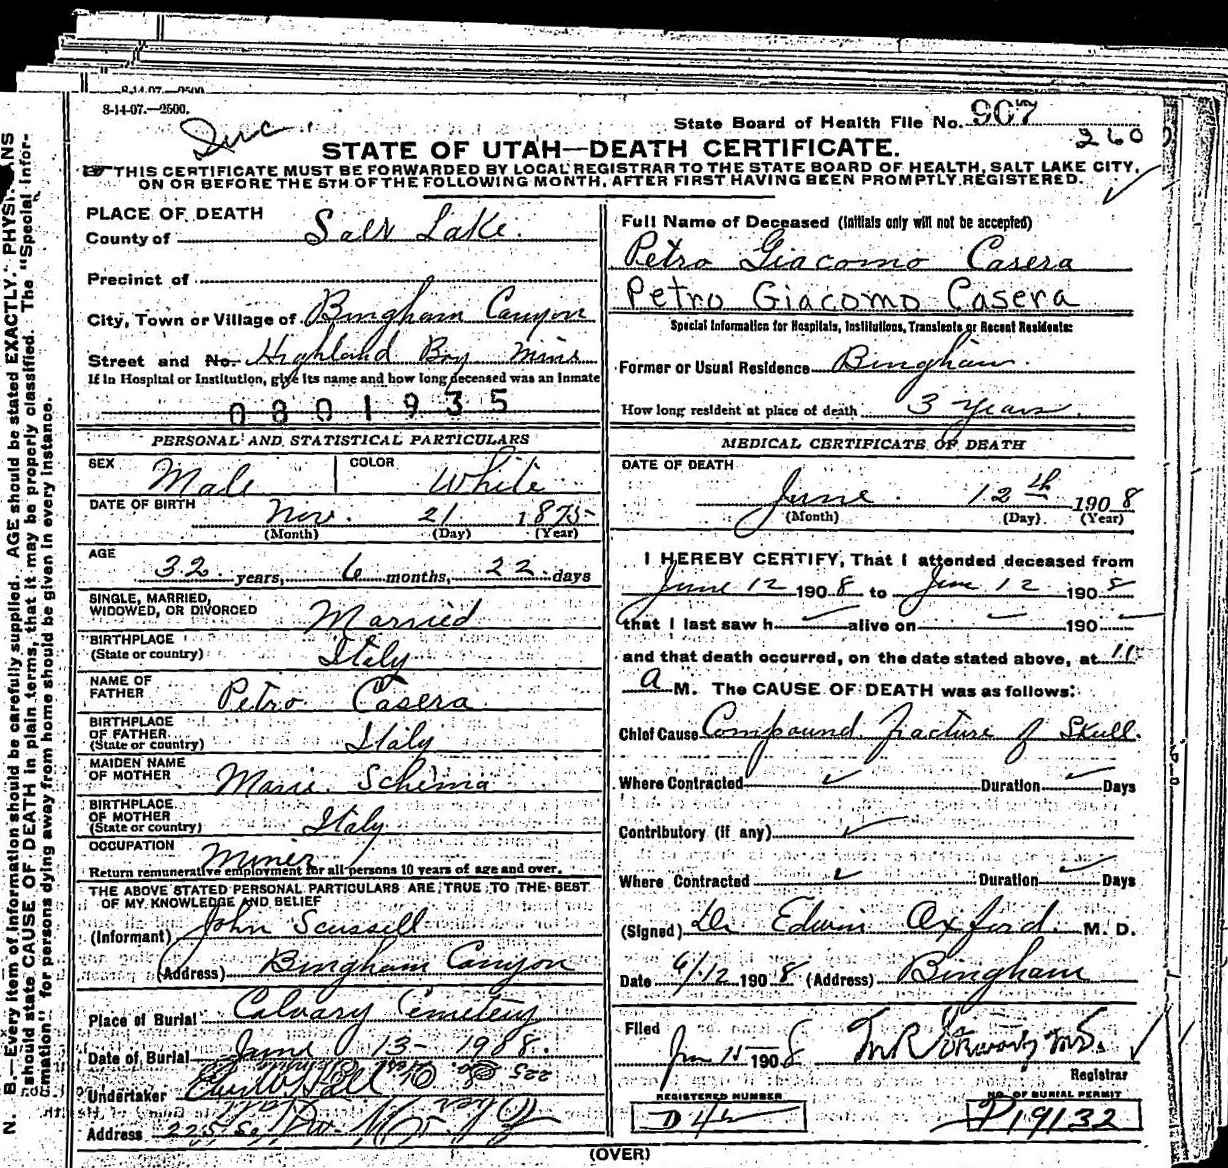 8-14-07.—2500.
State Board of Health File No. 907
260
STATE OF UTAH—DEATH CERTIFICATE.
THIS CERTIFICATE MUST BE FORWARDED BY LOCAL REGISTRAR TO THE STATE BOARD OF HEALTH, SALT LAKE CITY,
ON OR BEFORE THE 5TH OF THE FOLLOWING MONTH, AFTER FIRST HAVING BEEN PROMPTLY REGISTERED.
PLACE OF DEATH
County of Salt Lake.
Precinct of
City, Town or Village of Bingham Canyon
Street and No. Highland Boy Mine
If in Hospital or Institution, give its name and how long deceased was an inmate
0801935
PERSONAL AND STATISTICAL PARTICULARS
SEX Male COLOR White
DATE OF BIRTH Nov. 21 1875
(Month) (Day) (Year)
AGE 32 years, 6 months, 22 days
SINGLE, MARRIED,
WIDOWED, OR DIVORCED Married
BIRTHPLACE
(State or country) Italy
NAME OF
FATHER Petro Casera
BIRTHPLACE
OF FATHER
(State or country) Italy
MAIDEN NAME
OF MOTHER Marie Schema
BIRTHPLACE
OF MOTHER
(State or country) Italy
OCCUPATION Miner
Return remunerative employment for all persons 10 years of age and over.
THE ABOVE STATED PERSONAL PARTICULARS ARE TRUE TO THE BEST
OF MY KNOWLEDGE AND BELIEF
(Informant) John Scussell
(Address) Bingham Canyon
Place of Burial Calvary Cemetery
Date of Burial June 13- 1908.
Undertaker
Address 225 So.
Full Name of Deceased (Initials only will not be accepted)
Petro Giacomo Casera
Petro Giacomo Casera
Special Information for Hospitals, Institutions, Transients or Recent Residents:
Former or Usual Residence Bingham.
How long resident at place of death 3 Years.
MEDICAL CERTIFICATE OF DEATH
DATE OF DEATH
June 12th 1908
(Month) (Day) (Year)
I HEREBY CERTIFY, That I attended deceased from
June 12 1908 to June 12 1908
that I last saw h alive on 190
and that death occurred, on the date stated above, at 11
a M. The CAUSE OF DEATH was as follows:
Chief Cause Compound fracture of Skull.
Where Contracted Duration Days
Contributory (if any)
Where Contracted Duration Days
(Signed) Dr Edwin Oxford. M. D.
Date 6/12 1908 (Address) Bingham
Filed
Jun 15 1908
Registrar
REGISTERED NUMBER
NO. OF BURIAL PERMIT
P19132
(OVER)
N. B.—Every item of information should be carefully supplied. AGE should be stated EXACTLY. PHYSICIANS
should state CAUSE OF DEATH in plain terms, that it may be properly classified. The "Special Infor-
mation" for persons dying away from home should be given in every instance.